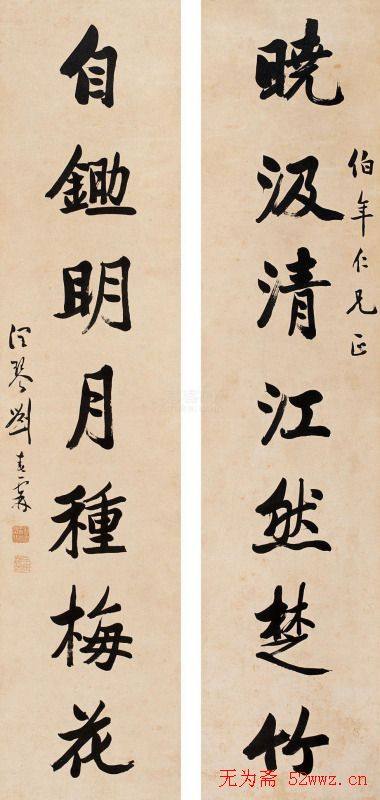 晓汲清江然楚竹
伯年仁兄正
自鋤明月種梅花
润琴劉春霖
无为斋 52wwz.cn